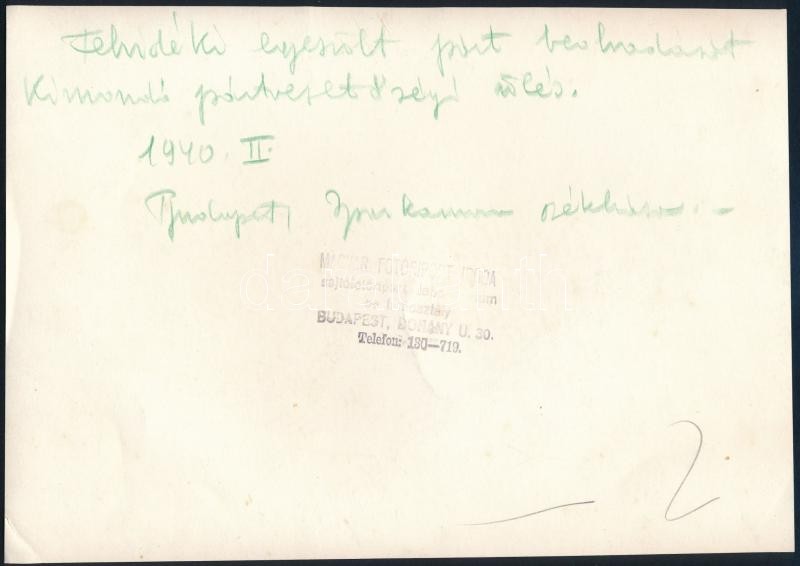 Felvidéki egyesült párt beolvadását
Kimondó pártvezetőségi ülés.
1940. II.
Budapest, Iparkamara székház.
MAGYAR FOTÓRIPORT IRODA
sajtófotóriport laboratórium
BUDAPEST, DOHÁNY U. 30.
Telefon: 130—719.
2